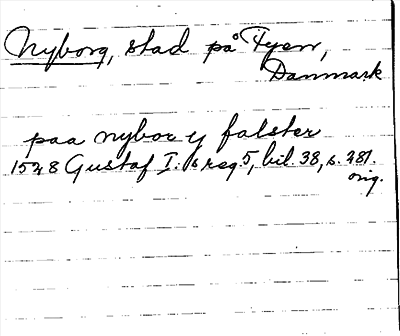 Nyborg, stad på Fyen,
Danmark
paa nyborg y falster
1528 Gustaf I:s reg. 5, bil. 38, s. 281.
orig.